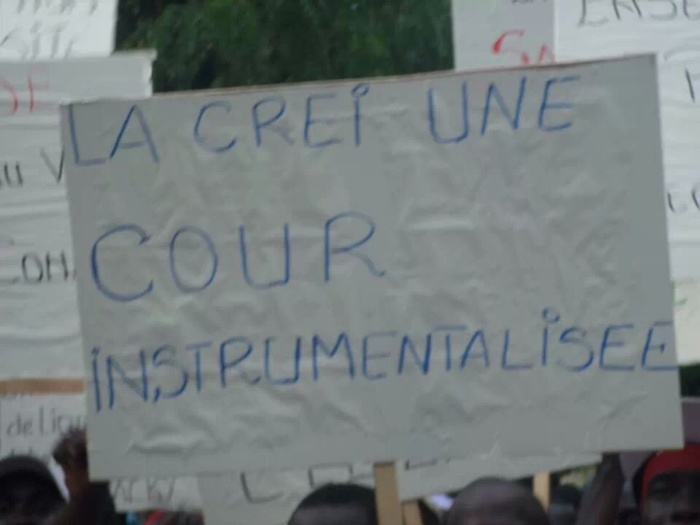 LA CREi UNE
COUR
iNSTRUMENTALiSEE